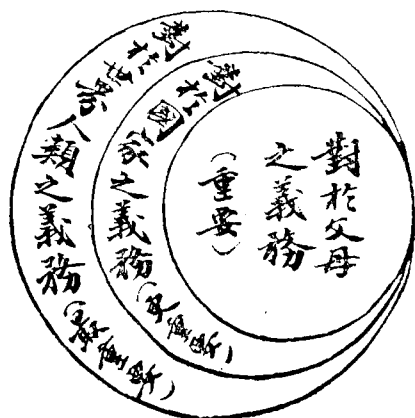 對於父母
之義務
（重要）
對於國家之義務（更重要）
對於世界人類之義務（最重要）